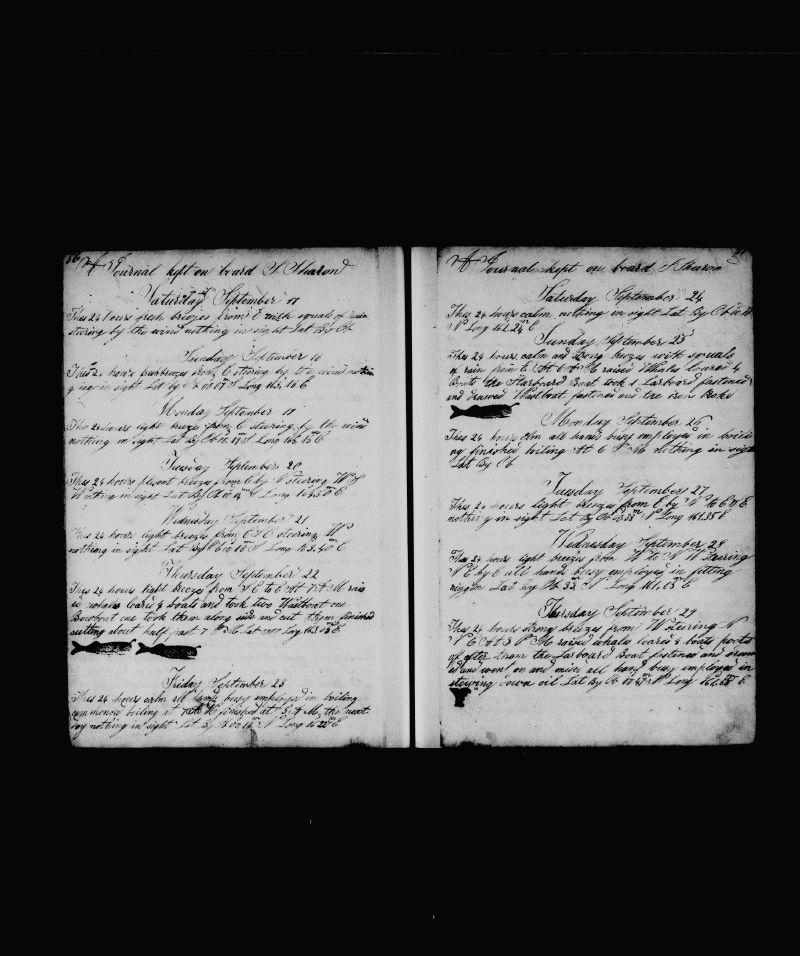 A Journal kept on board S Sharon
Saturday September 17
This 24 hours fresh breezes from E with squals of rain
stering by the wind nothing in sight Lat By Ob
Sunday September 18
This 24 hours fresh breezes from E stering by the wind nothin
g in sight Lat by Long 163, 10 E
Monday September 19
This 24 hours light breezes from E stering by the wind
nothing in sight Lat By Ob Long 163 15 E
Tuesday September 20
This 24 hours plesent breezes from E by N stering
nothing in sight Lat By Ob Long E
Wednesday September 21
This 24 hours light breezes from stering W
nothing in sight Lat By Ob Long 163,40 E
Thursday September 22
This 24 hours light breezes from to E At 7 A M rais
ed whales loared 4 boats and took two Wastboat one
Bowboat one took them along side and cut them finished
cutting about half past 7 P M Lat Long 163 E
Friday September 23
This 24 hours calm all hands busy employed in boiling
commenced boiling at finished at 5 A M, the next
day nothing in sight Lat By Ob Long E
A Journal kept on board S Sharon
Saturday September 24
This 24 hours calm nothing in sight Lat By Ob
N Long 162.24 E
Sunday September 25
This 24 hours calm and strong breezes with squals
of rain from E At 6 A M raised Whales loared 4
Boats the Starboard Boat took 1 Larboard fastened
and drawed Wastboat fastened and the iron broke
Monday September 26
This 24 hours calm all hands busy employed in boili
ng finished boiling At 6 P M nothing in sight
Lat By Ob
Tuesday September 27
This 24 hours light breezes from E by N to E
nothing in sight Lat By Ob N Long 161.35 E
Wednesday September 28
This 24 hours light breezes from Stering
N E by E all hands busy employed in fitting
riggin Lat by Ob N Long 161, 05 E
Thursday September 29
This 24 hours strong breezes from Stering N
At 3 P M raised whales loared 4 boats
of after them the Larboard Boat fastened and draw
ed and went on and mised all hands busy employed in
stowing down oil Lat By Ob N Long 161.55 E